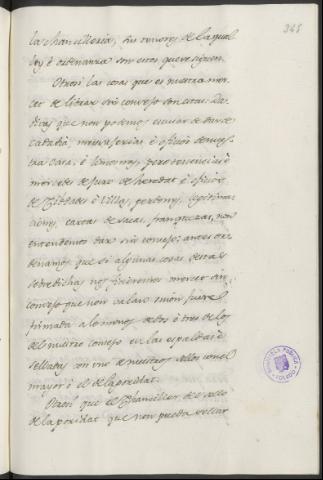 345
la chancilleria, los tenores de la qual
ley è ordenanza son estos que se siguen.
Otrosi las cosas que es nuestra mer-
ced de librar sin consejo son estas. Da-
divas que non podemos escusar de dar de
cada dia, mensagerias è oficios de nues-
tra Casa, è limosnas, pero tenencias è
mercedes de juro de heredat è oficios
de Cibdades è Villas, perdones, legitima-
ciones, cartas de sacas, franquezas, non
entendemos dar sin consejo; antes or-
denamos que si algunas cosas destas
sobredichas nos ficieremos merced sin
consejo que non valan nin fuere
firmada a lo menos de dos ò tres de los
del nuestro Consejo en las espaldas è
selladas con uno de nuestros sellos con el
mayor è el de la poridat.
Otrosi que el Chanciller del sello
de la poridat que non pueda sellar
BIBLIOTECA PUBLICA
TOLEDO